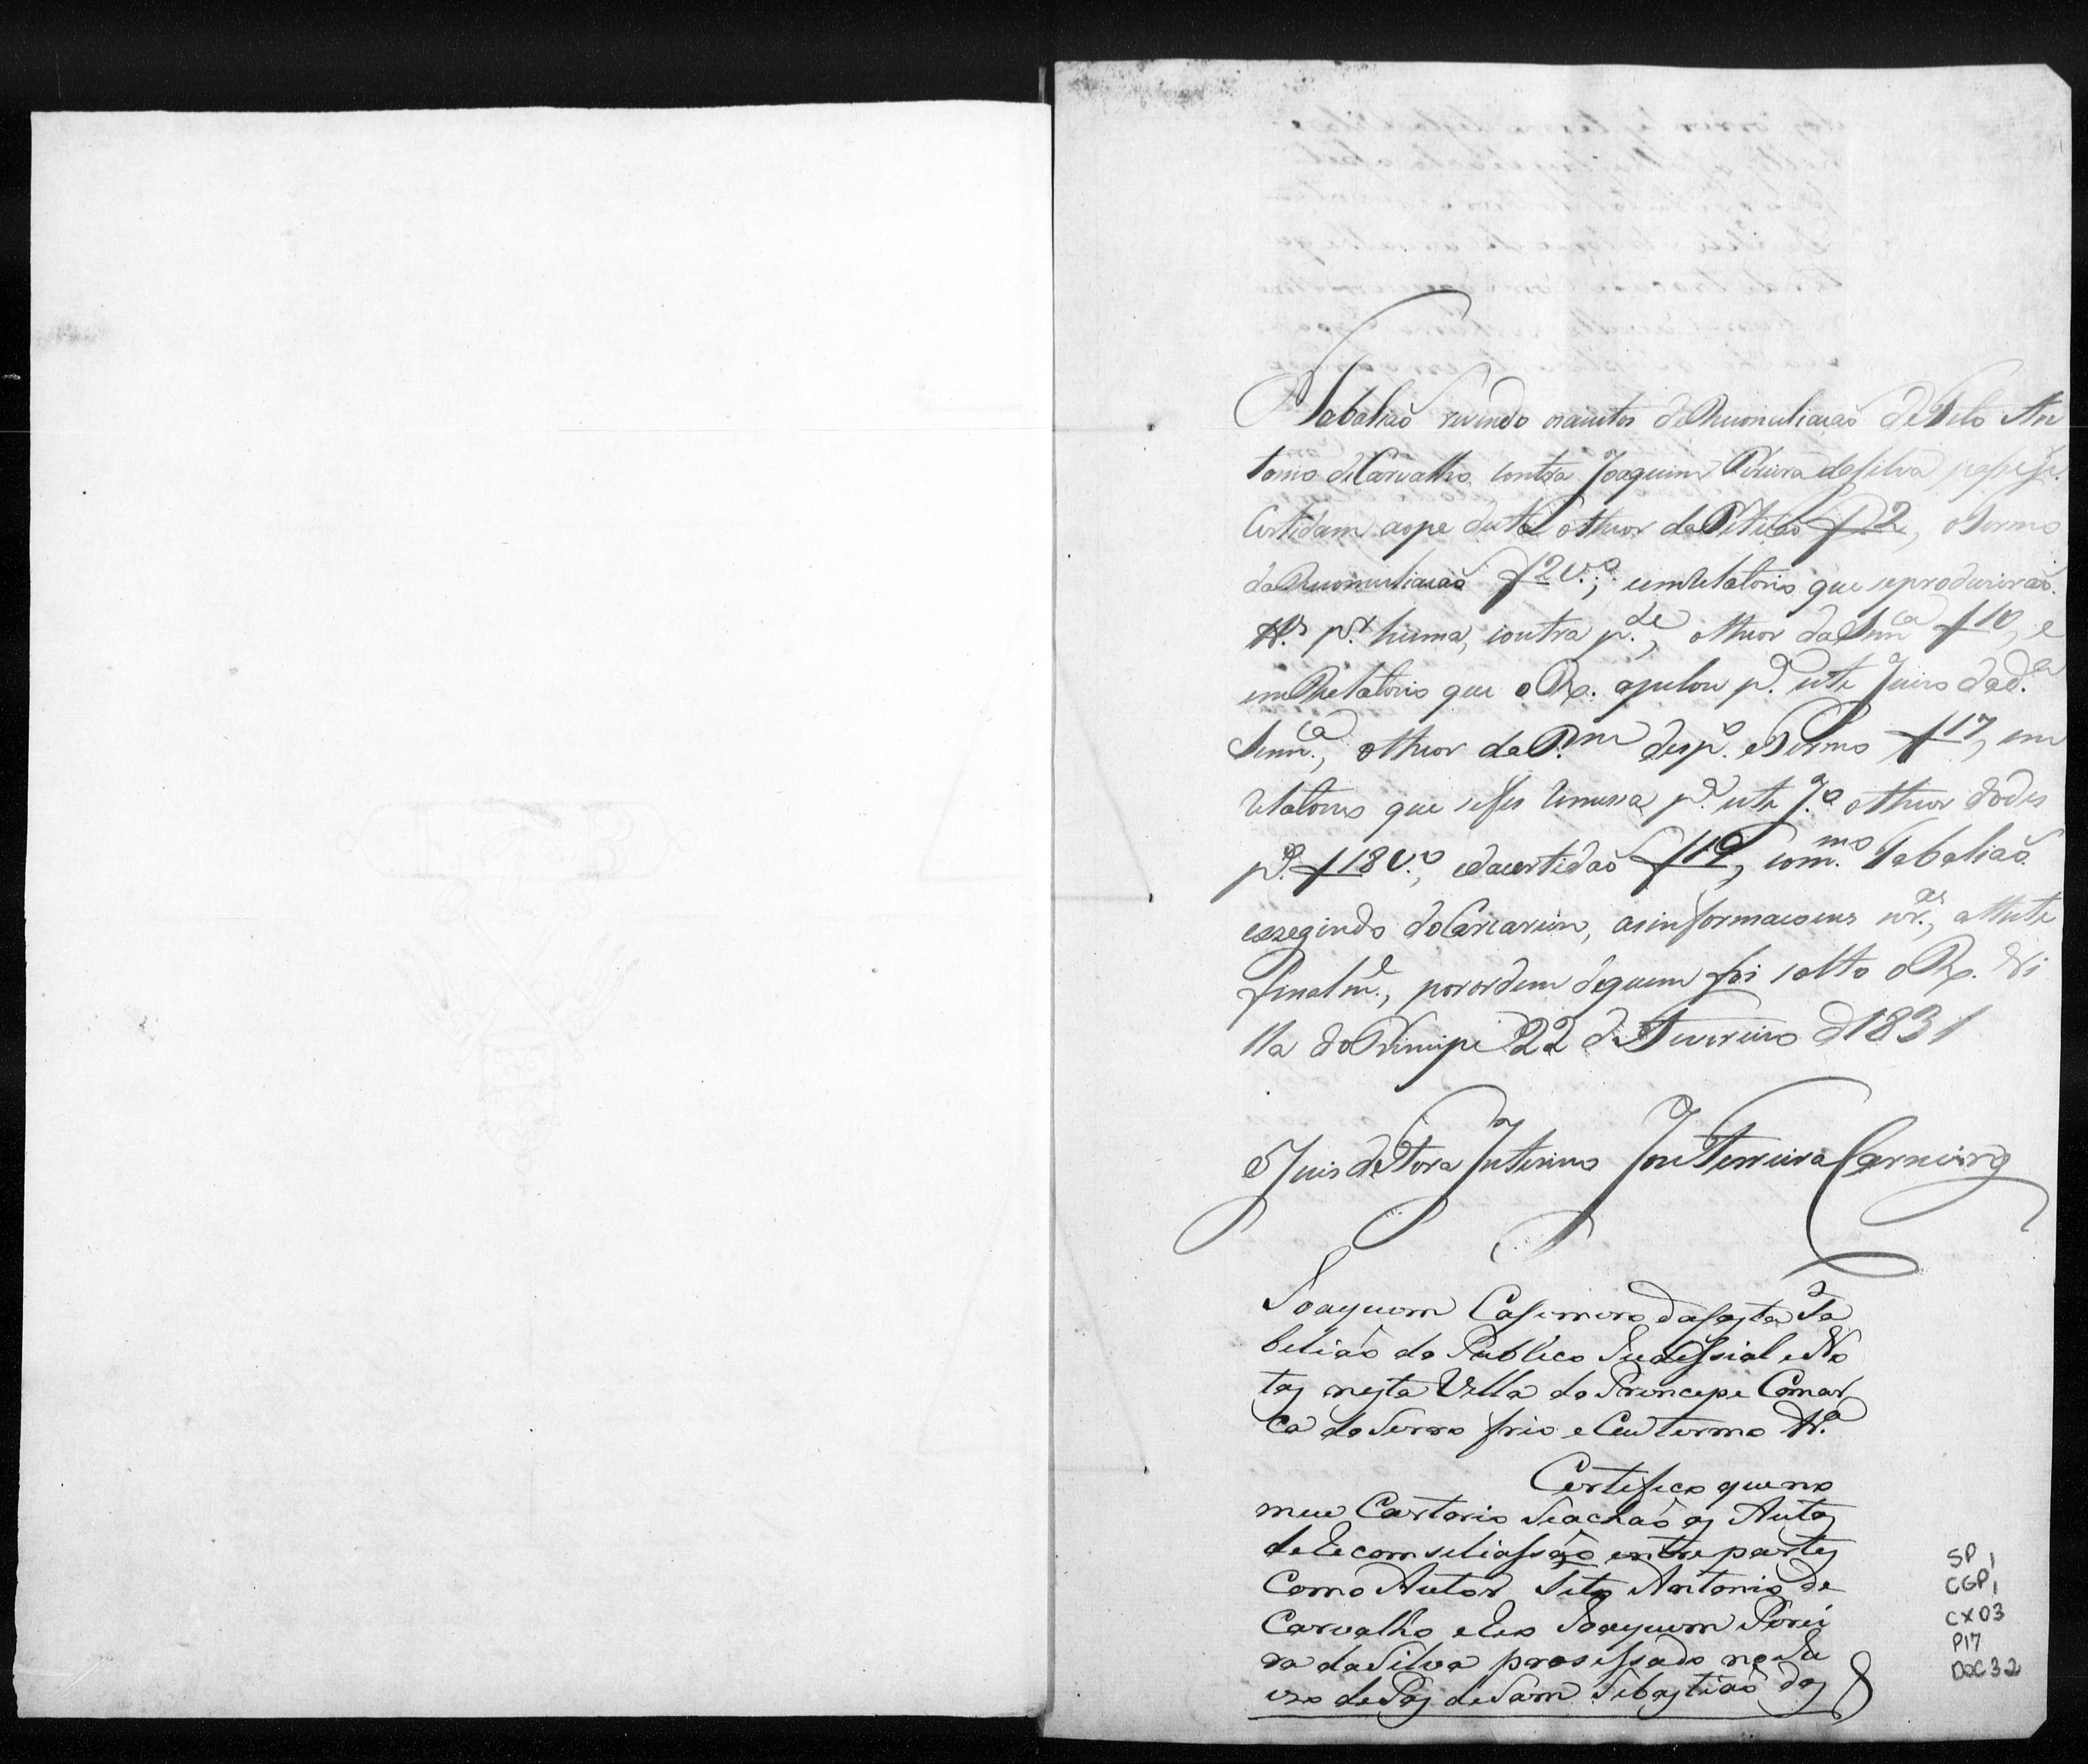 O Tabaliaõ revendo os autos de Reconciliacaõ de Tito An
tonio de Carvalho contra Joaquim Pereira da Silva passe p.r
Certidam ao pe desta o theor da Peticaõ f 2, o Termo
da Reconciliacaõ f 2 v.o, e em relatorio que se produziraõ
tt.as p.r huma, e outra p.te, o theor da Senn.ca f 10, e
em Relatorio que o R. apelou p.a este Juizo da d.a
Senn.ca, o theor da P.am desp.o e Termo f 17, em
relatorio que se fes remessa p.a este J.o o theor do des
p.o f 18 v.o, e da certidaõ f 19, e o m.mo Tabaliaõ
exzegindo do Carcareiro, as informacoens, atteste
finalm.e, por ordem de quem foi solto o R. Vi
lla do Principe 22 de Fevereiro d 1831
O Juis de Fora Interino Joze Ferreira Carneiro
Joaquim Casimiro da Costa Ta
beliaõ do Publico Judissial e No
tas nesta Villa do Princepe Comar
ca do Serro frio e Ceu termo &.a
Certifico que no
meu Cartorio Se achaõ os Autos
de Reconsiliassaõ entre partes
Como Autor Tito Antonio de
Carvalho e Reo Joaquim Perei
ra da Silva prosessado no Ju
izo de Pas de Sam Sebastiaõ das
SP 1
CGP 1
CX 03
P17
DOC 32